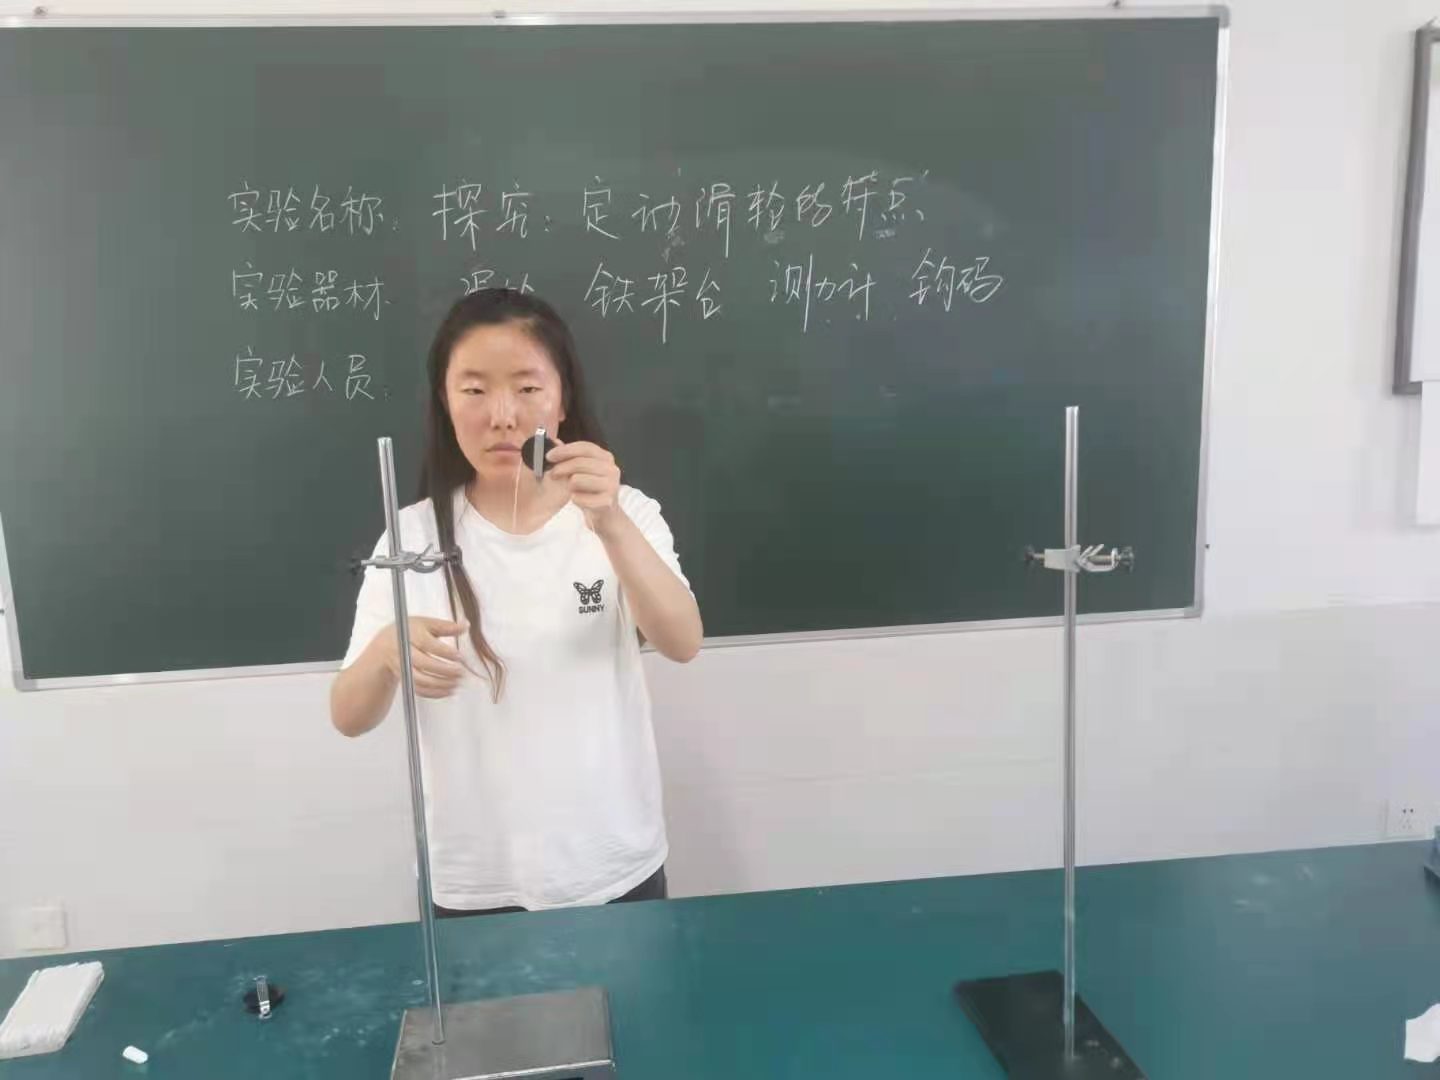 实验名称：探究：定动滑轮的特点
实验器材 铁架台 测力计 钩码
实验人员：
SUNNY